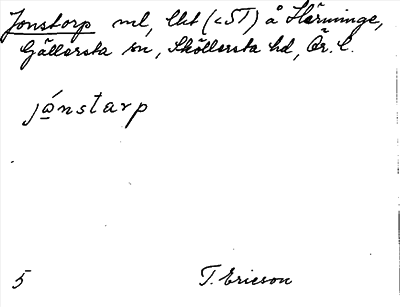 Jonstorp ml, lht (<ST) å Härminge,
Gällersta sn, Sköllersta hd, Ör. l.
jónstarp
5 T. Ericson